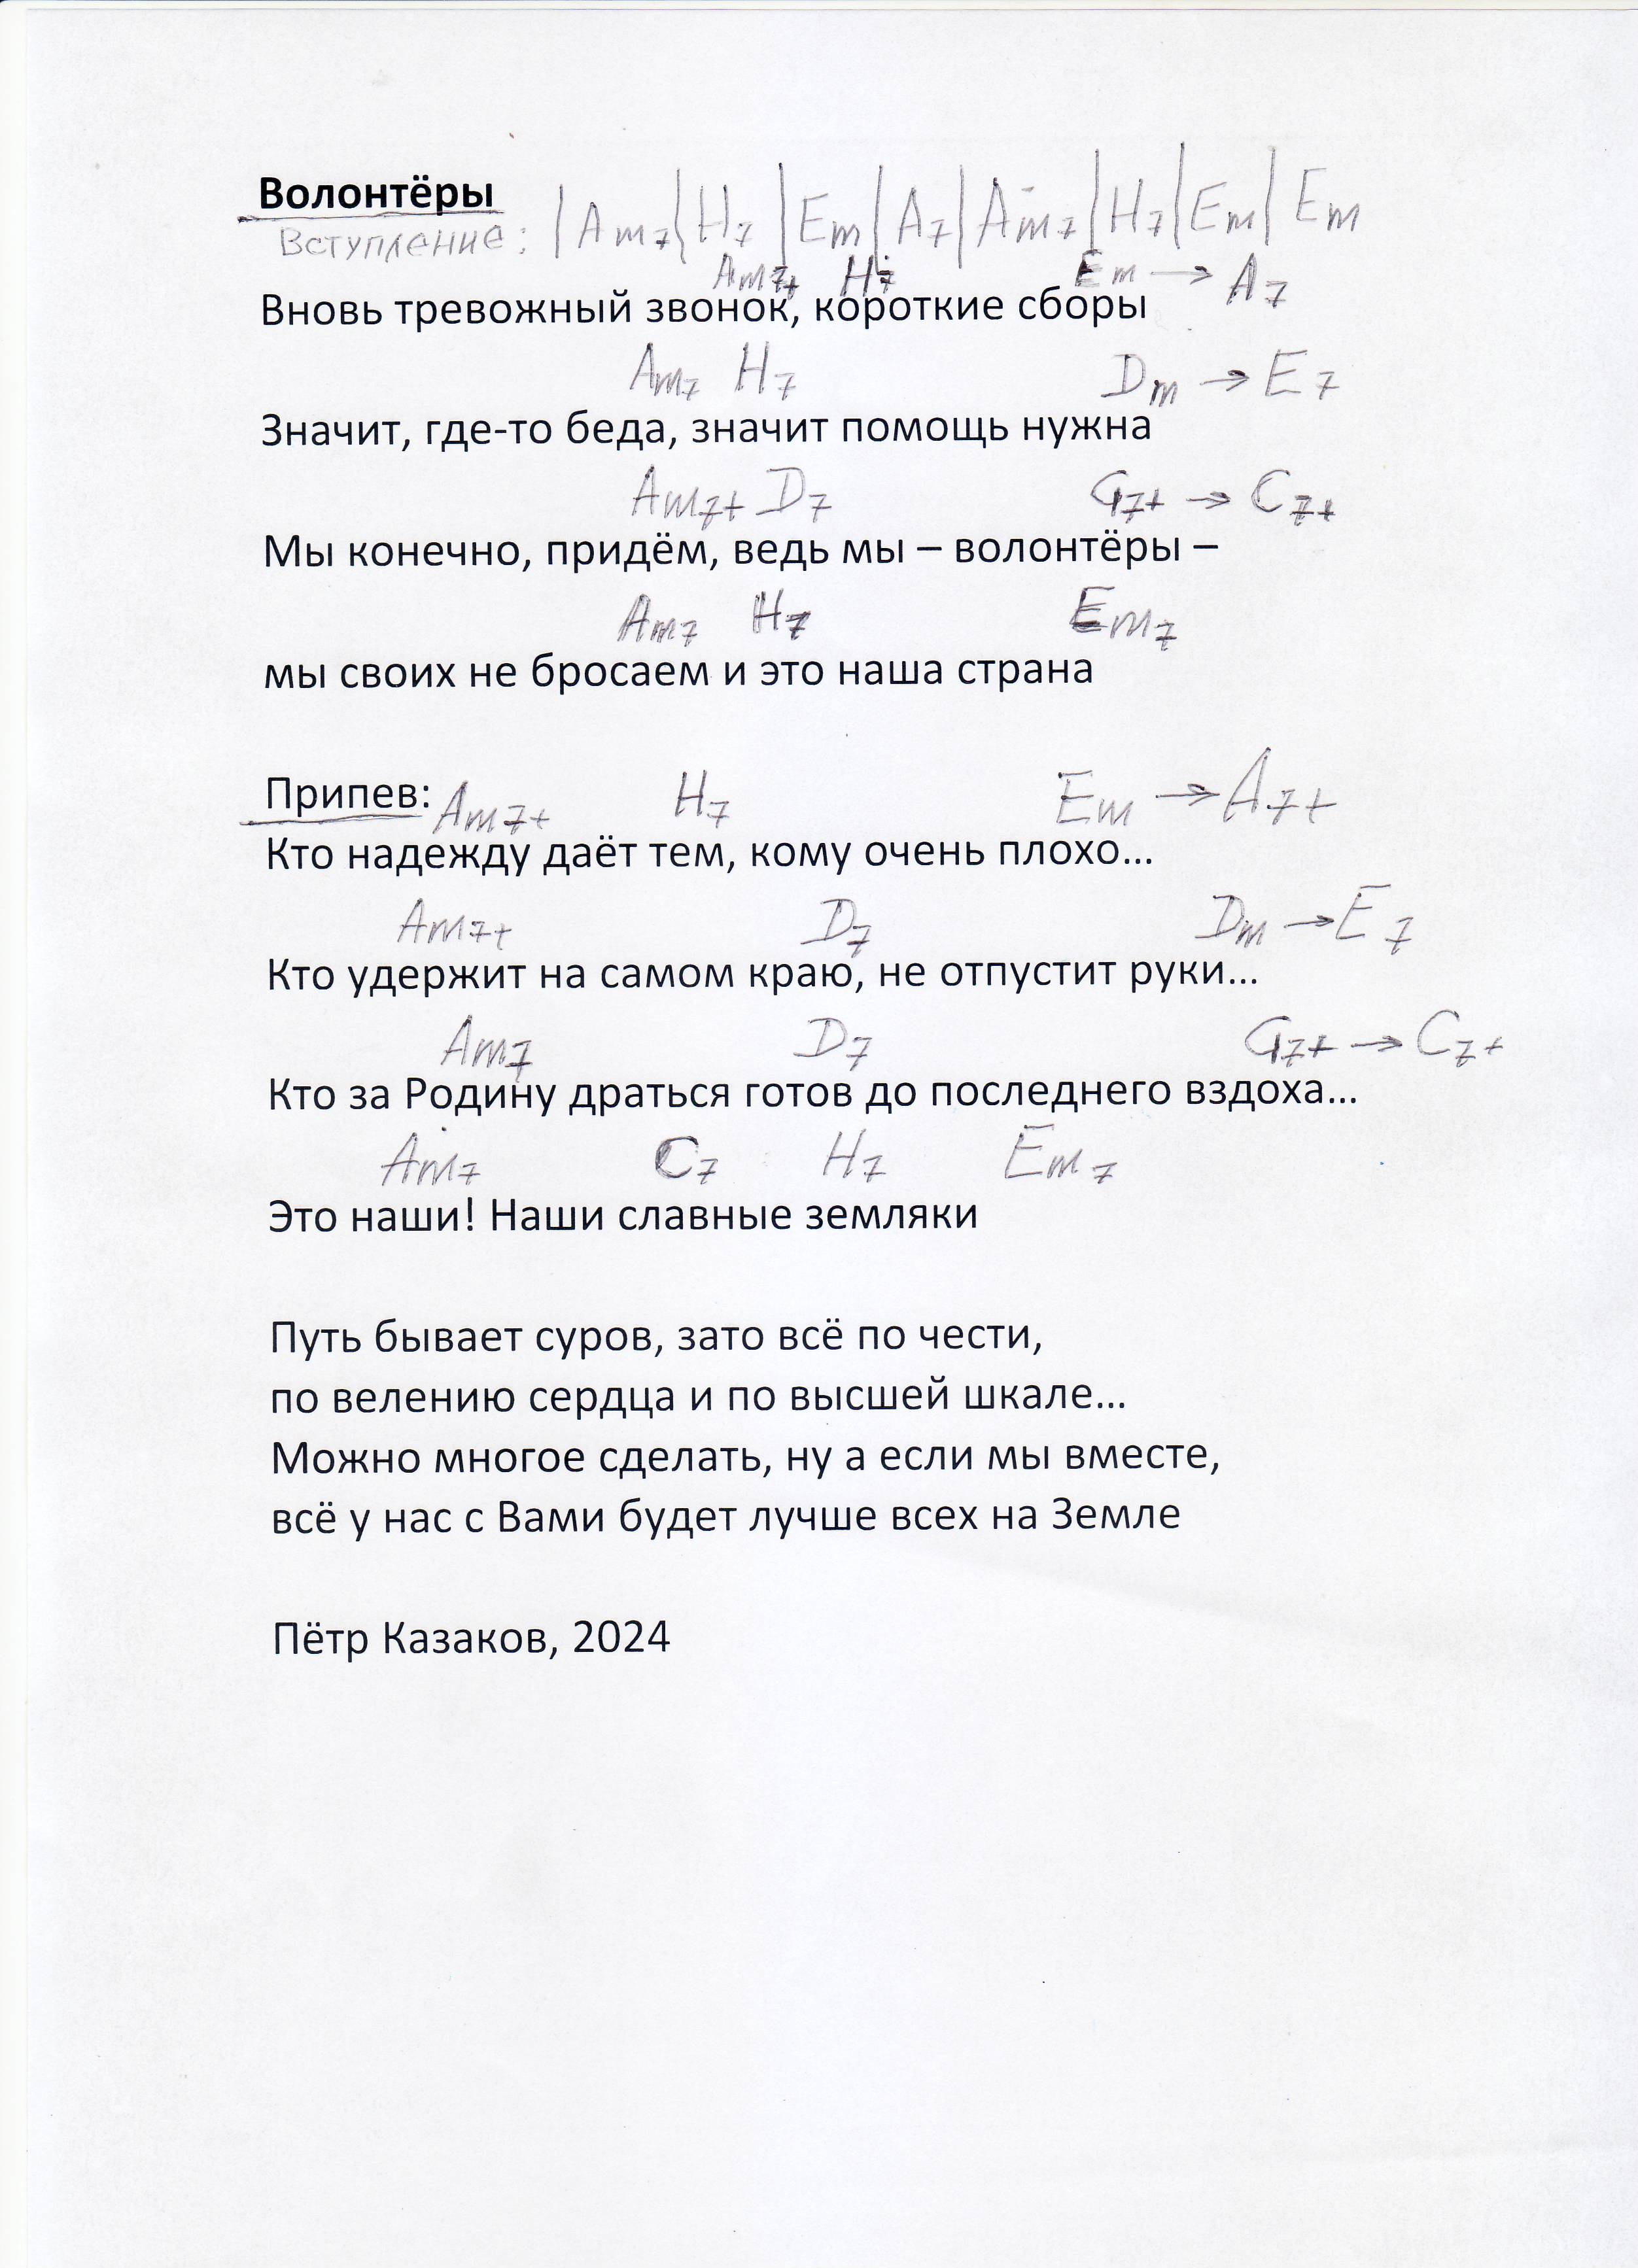 Волонтёры
Вступление: | Am7 | H7 | Em | A7 | Am7 | H7 | Em | Em
Am7+ H7 Em → A7
Вновь тревожный звонок, короткие сборы
Am7 H7 Dm → E7
Значит, где-то беда, значит помощь нужна
Am7+ D7 G7+ → C7+
Мы конечно, придём, ведь мы – волонтёры –
Am7 H7 Em7
мы своих не бросаем и это наша страна
Припев: Am7+ H7 Em → A7+
Кто надежду даёт тем, кому очень плохо...
Am7+ D7 Dm → E7
Кто удержит на самом краю, не отпустит руки...
Am7 D7 G7+ → C7+
Кто за Родину драться готов до последнего вздоха...
Am7 C7 H7 Em7
Это наши! Наши славные земляки
Путь бывает суров, зато всё по чести,
по велению сердца и по высшей шкале...
Можно многое сделать, ну а если мы вместе,
всё у нас с Вами будет лучше всех на Земле
Пётр Казаков, 2024